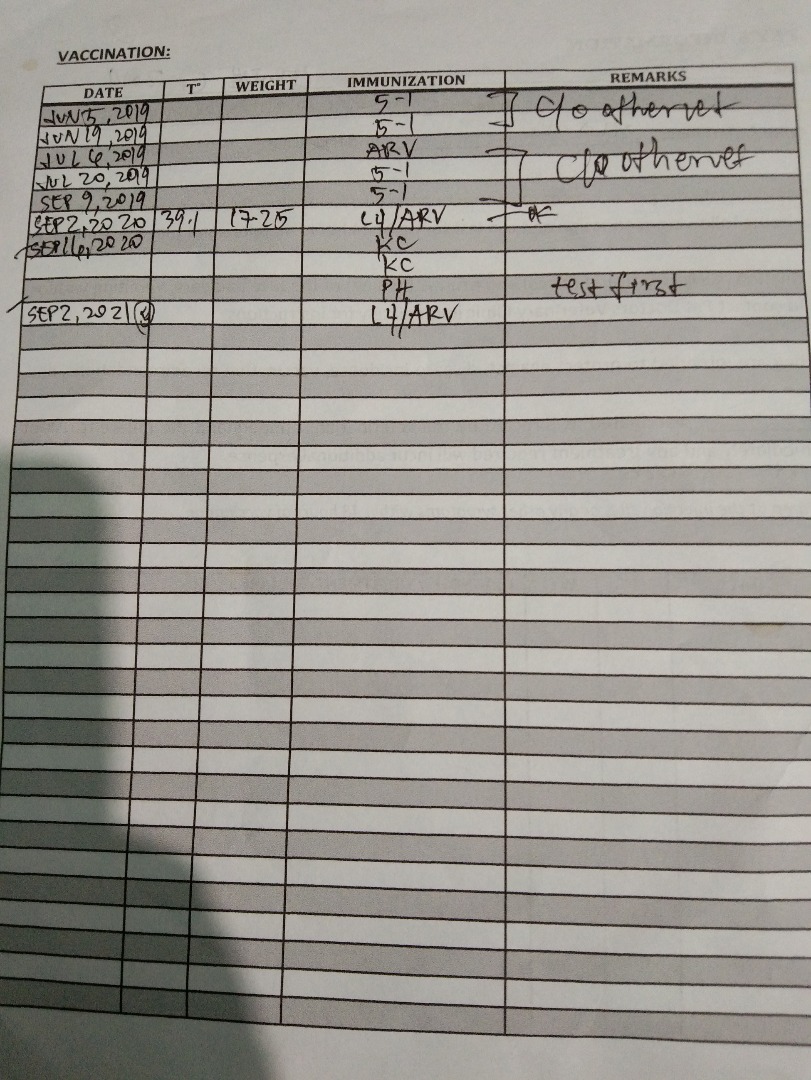 VACCINATION:
DATE T° WEIGHT IMMUNIZATION REMARKS
JUN 5, 2019 5-1 c/o othervet
JUN 19, 2019 5-1
JUL 6, 2019 ARV c/o othervet
JUL 20, 2019 5-1
SEP 9, 2019 5-1
SEP 2, 2020 39.1 17.25 L4/ARV
SEP 16, 2020 KC
KC
PH test first
SEP 2, 2021 L4/ARV